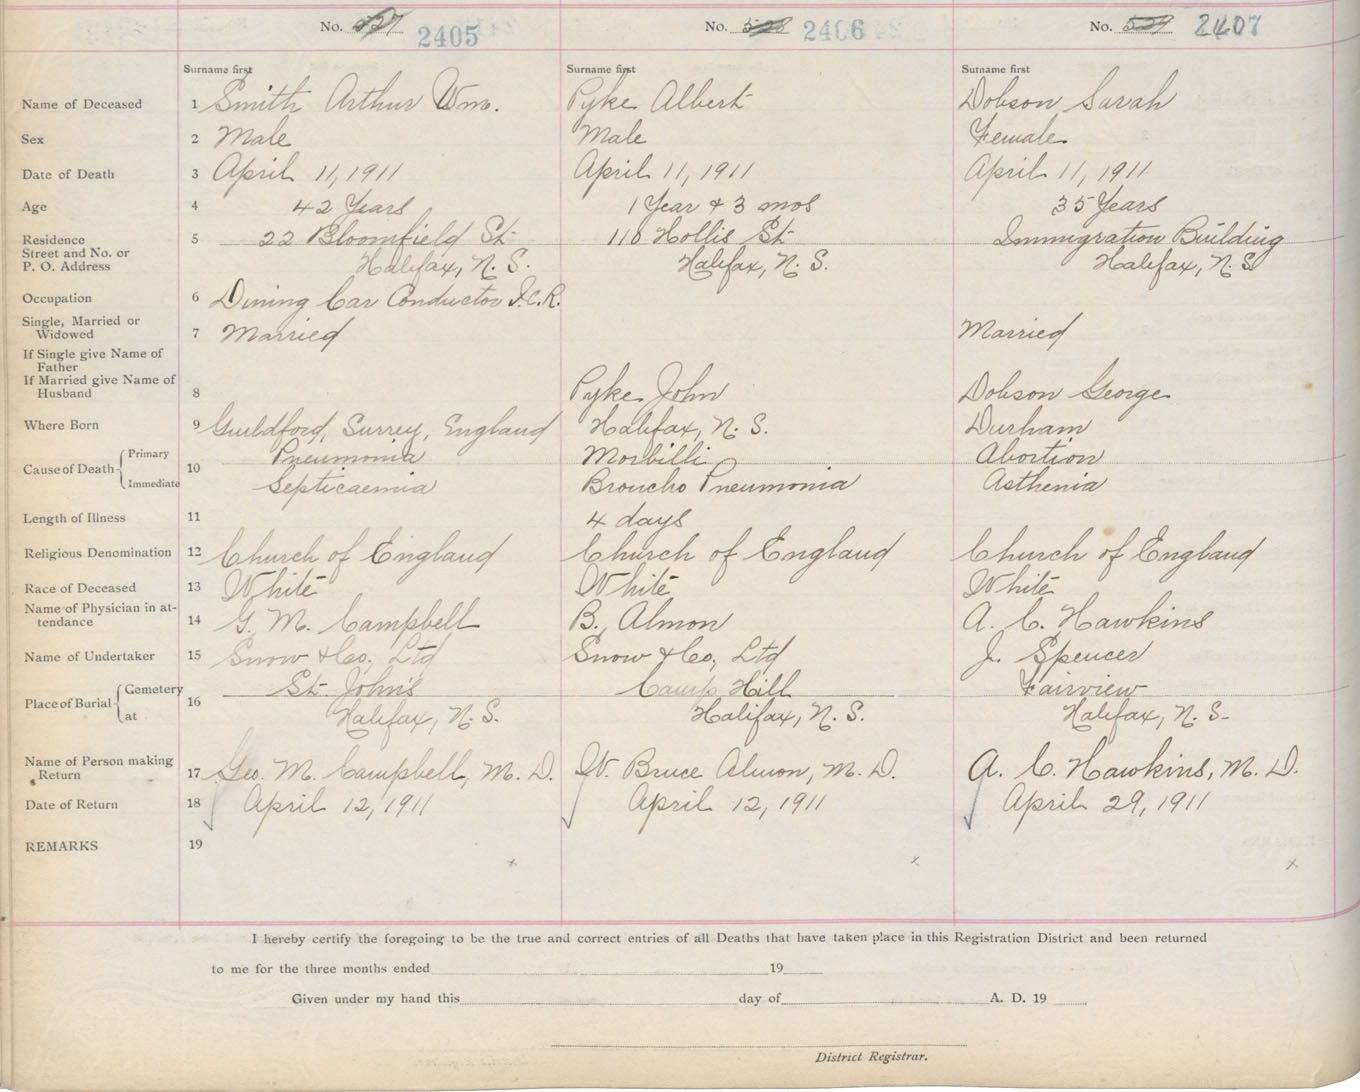 No. 527 2405 No. 528 2406 No. 529 2407
Surname first Surname first Surname first
Name of Deceased 1 Smith Arthur Wm. Pyke Albert Dobson Sarah
Sex 2 Male Male Female
Date of Death 3 April 11, 1911 April 11, 1911 April 11, 1911
Age 4 42 Years 1 Year & 3 mos 35 Years
Residence 5 22 Bloomfield St. 110 Hollis St. Immigration Building
Street and No. or
P. O. Address Halifax, N. S. Halifax, N. S. Halifax, N. S.
Occupation 6 Dining Car Conductor I.C.R.
Single, Married or
Widowed 7 Married Married
If Single give Name of
Father
If Married give Name of
Husband 8 Pyke John Dobson George
Where Born 9 Guildford, Surrey, England Halifax, N. S. Durham
Cause of Death 10 Primary Pneumonia Morbilli Abortion
Immediate Septicaemia Broncho Pneumonia Asthenia
Length of Illness 11 4 days
Religious Denomination 12 Church of England Church of England Church of England
Race of Deceased 13 White White White
Name of Physician in at-
tendance 14 G. M. Campbell B. Almon A. C. Hawkins
Name of Undertaker 15 Snow & Co. Ltd Snow & Co, Ltd J. Spencer
Place of Burial 16 Cemetery St. John's Camp Hill Fairview
at Halifax, N. S. Halifax, N. S. Halifax, N. S.
Name of Person making
Return 17 Geo. M. Campbell, M. D. W. Bruce Almon, M. D. A. C. Hawkins, M. D.
Date of Return 18 April 12, 1911 April 12, 1911 April 29, 1911
REMARKS 19
x x x
I hereby certify the foregoing to be the true and correct entries of all Deaths that have taken place in this Registration District and been returned
to me for the three months ended 19
Given under my hand this day of A. D. 19
District Registrar.